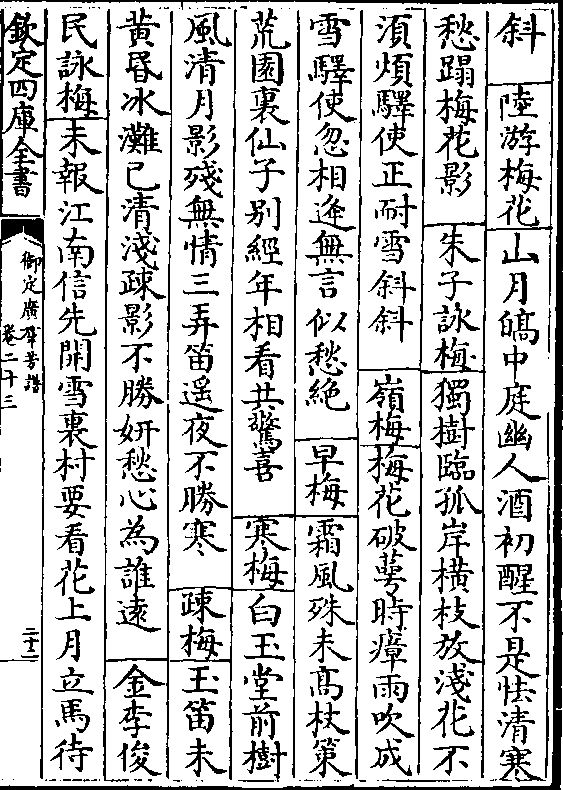 斜　陸游梅花山月皜中庭幽人酒初醒不是怯清寒
愁蹋梅花影　朱子詠梅獨樹臨孤岸橫枝放淺花不
湏煩驛使正耐雪斜斜　嶺梅梅花破萼時瘴雨吹成
雪驛使忽相逢無言似愁絶　早梅霜風殊未髙杖策
荒園裏仙子别經年相看共驚喜　寒梅白玉堂前樹
風清月影殘無情三弄笛遥夜不勝寒　疎梅玉笛未
黄昏冰灘已清淺疎影不勝妍愁心為誰遠　金李俊
民詠梅未報江南信先開雪裏村要看花上月立馬待
欽定四庫全書
御定廣羣芳譜
卷二十三